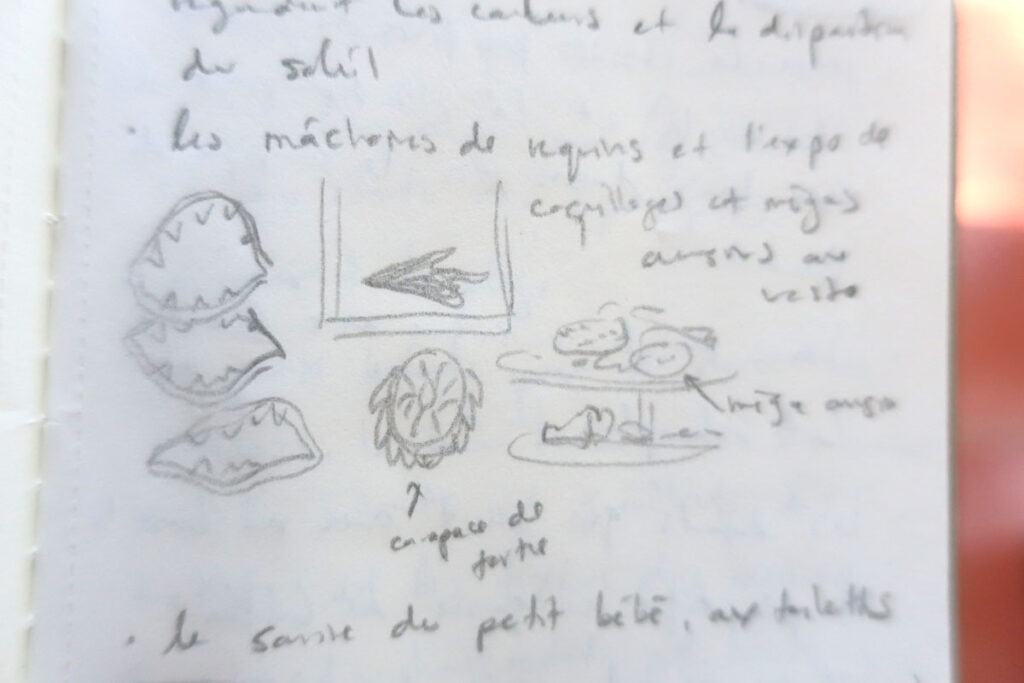 regardant les couleurs et la disparition
du soleil
• les mâchoires de requins et l'expo de
coquillages et méga
oursins au
resto
méga oursin
carapace de
tortue
• le sourire du petit bébé, aux toilettes